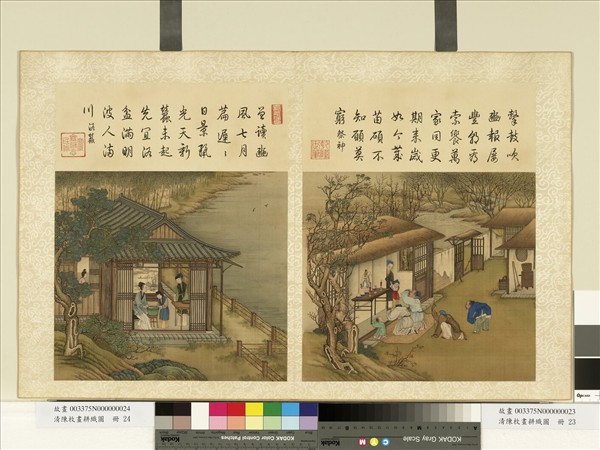 擊鼓吹
豳報屢
豐
索饗萬
家同更
期來歲
如今歲
苗碩不
知願莫
窮 祭神
曾讀豳
風七月
篇遲〻
日景麗
光天新
蠶未起
先宜浴
盆滿明
波人滿
川 浴蠶
故畫 003375N000000024
清陳枚畫耕織圖 冊 24
故畫 003375N000000023
清陳枚畫耕織圖 冊 23
Kodak
KODAK Color Control Patches
KODAK Gray Scale
C
M
Y
Kodak